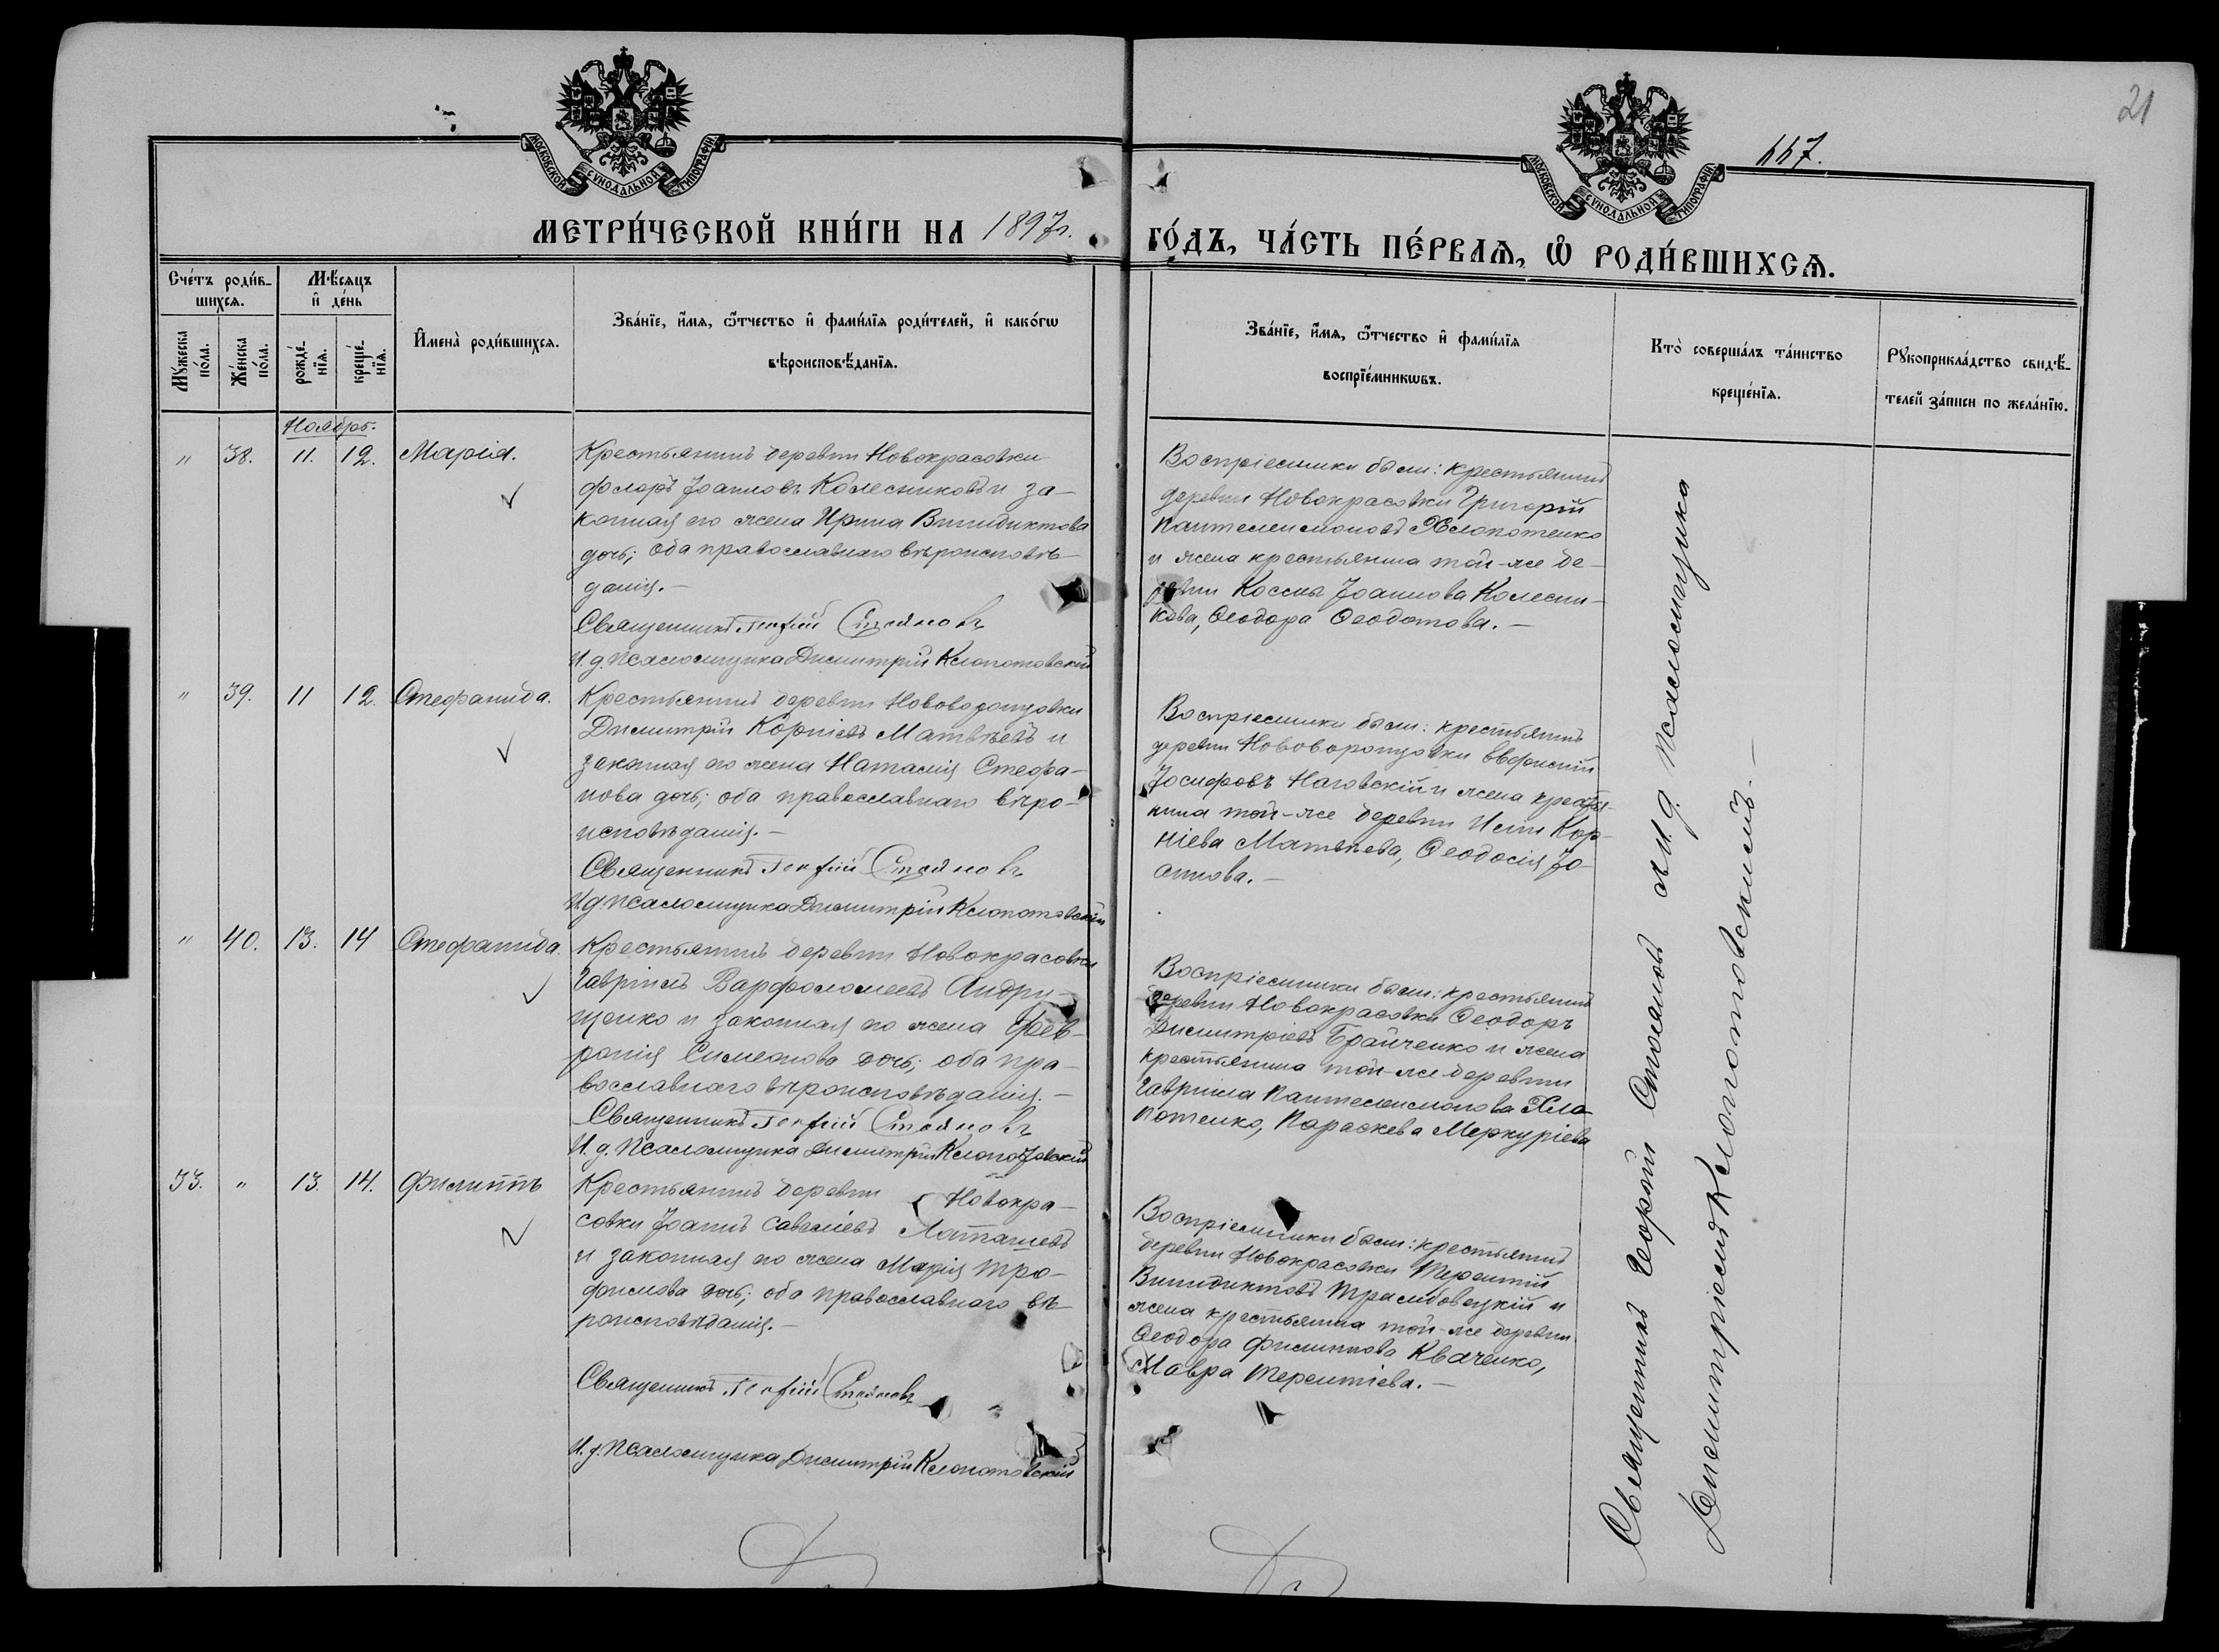 21
667.
МОСКОВСКОЙ СѴНОДАЛЬНОЙ ТИПОГРАФІИ
МОСКОВСКОЙ СѴНОДАЛЬНОЙ ТИПОГРАФІИ
МЕТРИ́ЧЕСКОЙ КНИ́ГИ НА 1897 г.
ГО́ДЪ, ЧА́СТЬ ПЕ́РВАѦ, Ѡ҆ РОДИ́ВШИХСѦ.
Сче́тъ роди́в-
шихсѧ.
Мѣ́сѧцъ
и҆ де́нь
Мꙋ́жеска
по́ла.
Же́нска
по́ла.
рожде́-
нїѧ.
креще́-
нїѧ.
И҆мена̀ роди́вшихсѧ.
Зва́нїе, и҆́мѧ, ѻ҆́тчество и҆ фами́лїѧ роди́телей, и҆ како́гѡ
вѣроисповѣ́данїѧ.
Зва́нїе, и҆́мѧ, ѻ҆́тчество и҆ фами́лїѧ
воспрїе́мникѡвъ.
Кто̀ соверша́лъ та́инство
креще́нїѧ.
Рꙋкоприкла́дство свидѣ́-
телей за́писи по жела́нїю.
Ноябрь.
" 38. 11. 12. Марія.
Крестьянинъ деревни Новокрасовки
Флоръ Іоанновъ Колесниковъ и за-
конная его жена Ирина Винидиктова
дочь; оба православнаго вѣроисповѣ-
данія.—
Священникъ Георгій Стояновъ
И. д. псаломщика Димитрій Клопотовскій
Воспріемники были: крестьянинъ
деревни Новокрасовки Григорій
Пантелеимоновъ Хлопотенко
и жена крестьянина той-же де-
ревни Коссмы Іоаннова Колесни-
кова, Ѳеодора Ѳеодотова.—
" 39. 11 12. Стефанида.
Крестьянинъ деревни Нововоронцовки
Димитрій Корніевъ Матвѣевъ и
законная его жена Наталія Стефа-
нова дочь; оба православнаго вѣро-
исповѣданія.—
Священникъ Георгій Стояновъ
И. д. псаломщика Димитрій Клопотовскій
Воспріемники были: крестьянинъ
деревни Нововоронцовки Евфимій
Іосифовъ Наговскій и жена крестья-
нина той-же деревни Исіи Кор-
ніева Матвѣева, Ѳеодосія Іо-
аннова.—
" 40. 13. 14 Стефанида.
Крестьянинъ деревни Новокрасовки
Гавріилъ Варфоломеевъ Андру-
щенко и законная его жена Фев-
ронія Симеонова дочь; оба пра-
вославнаго вѣроисповѣданія.—
Священникъ Георгій Стояновъ
И. д. псаломщика Димитрій Клопотовскій
Воспріемники были: крестьянинъ
деревни Новокрасовки Ѳеодоръ
Димитріевъ Брайченко и жена
крестьянина той-же деревни
Гавріила Пантелеимонова Хло-
потенко, Параскева Меркуріева
33. " 13. 14. Филиппъ
Крестьянинъ деревни Новокра-
совки Іоаннъ Савеліевъ Латашевъ
и законная его жена Марія Тро-
фимова дочь; оба православнаго вѣ-
роисповѣданія.—
Священникъ Георгій Стояновъ
И. д. псаломщика Димитрій Клопотовскій
Воспріемники были: крестьянинъ
деревни Новокрасовки Терентій
Винидиктовъ Трамбовецкій и
жена крестьянина той-же деревни
Ѳеодора Филиппова Кваченко,
Мавра Терентіева.—
Священникъ Георгій Стояновъ и И. д. псаломщика
Димитрій Клопотовскій.—